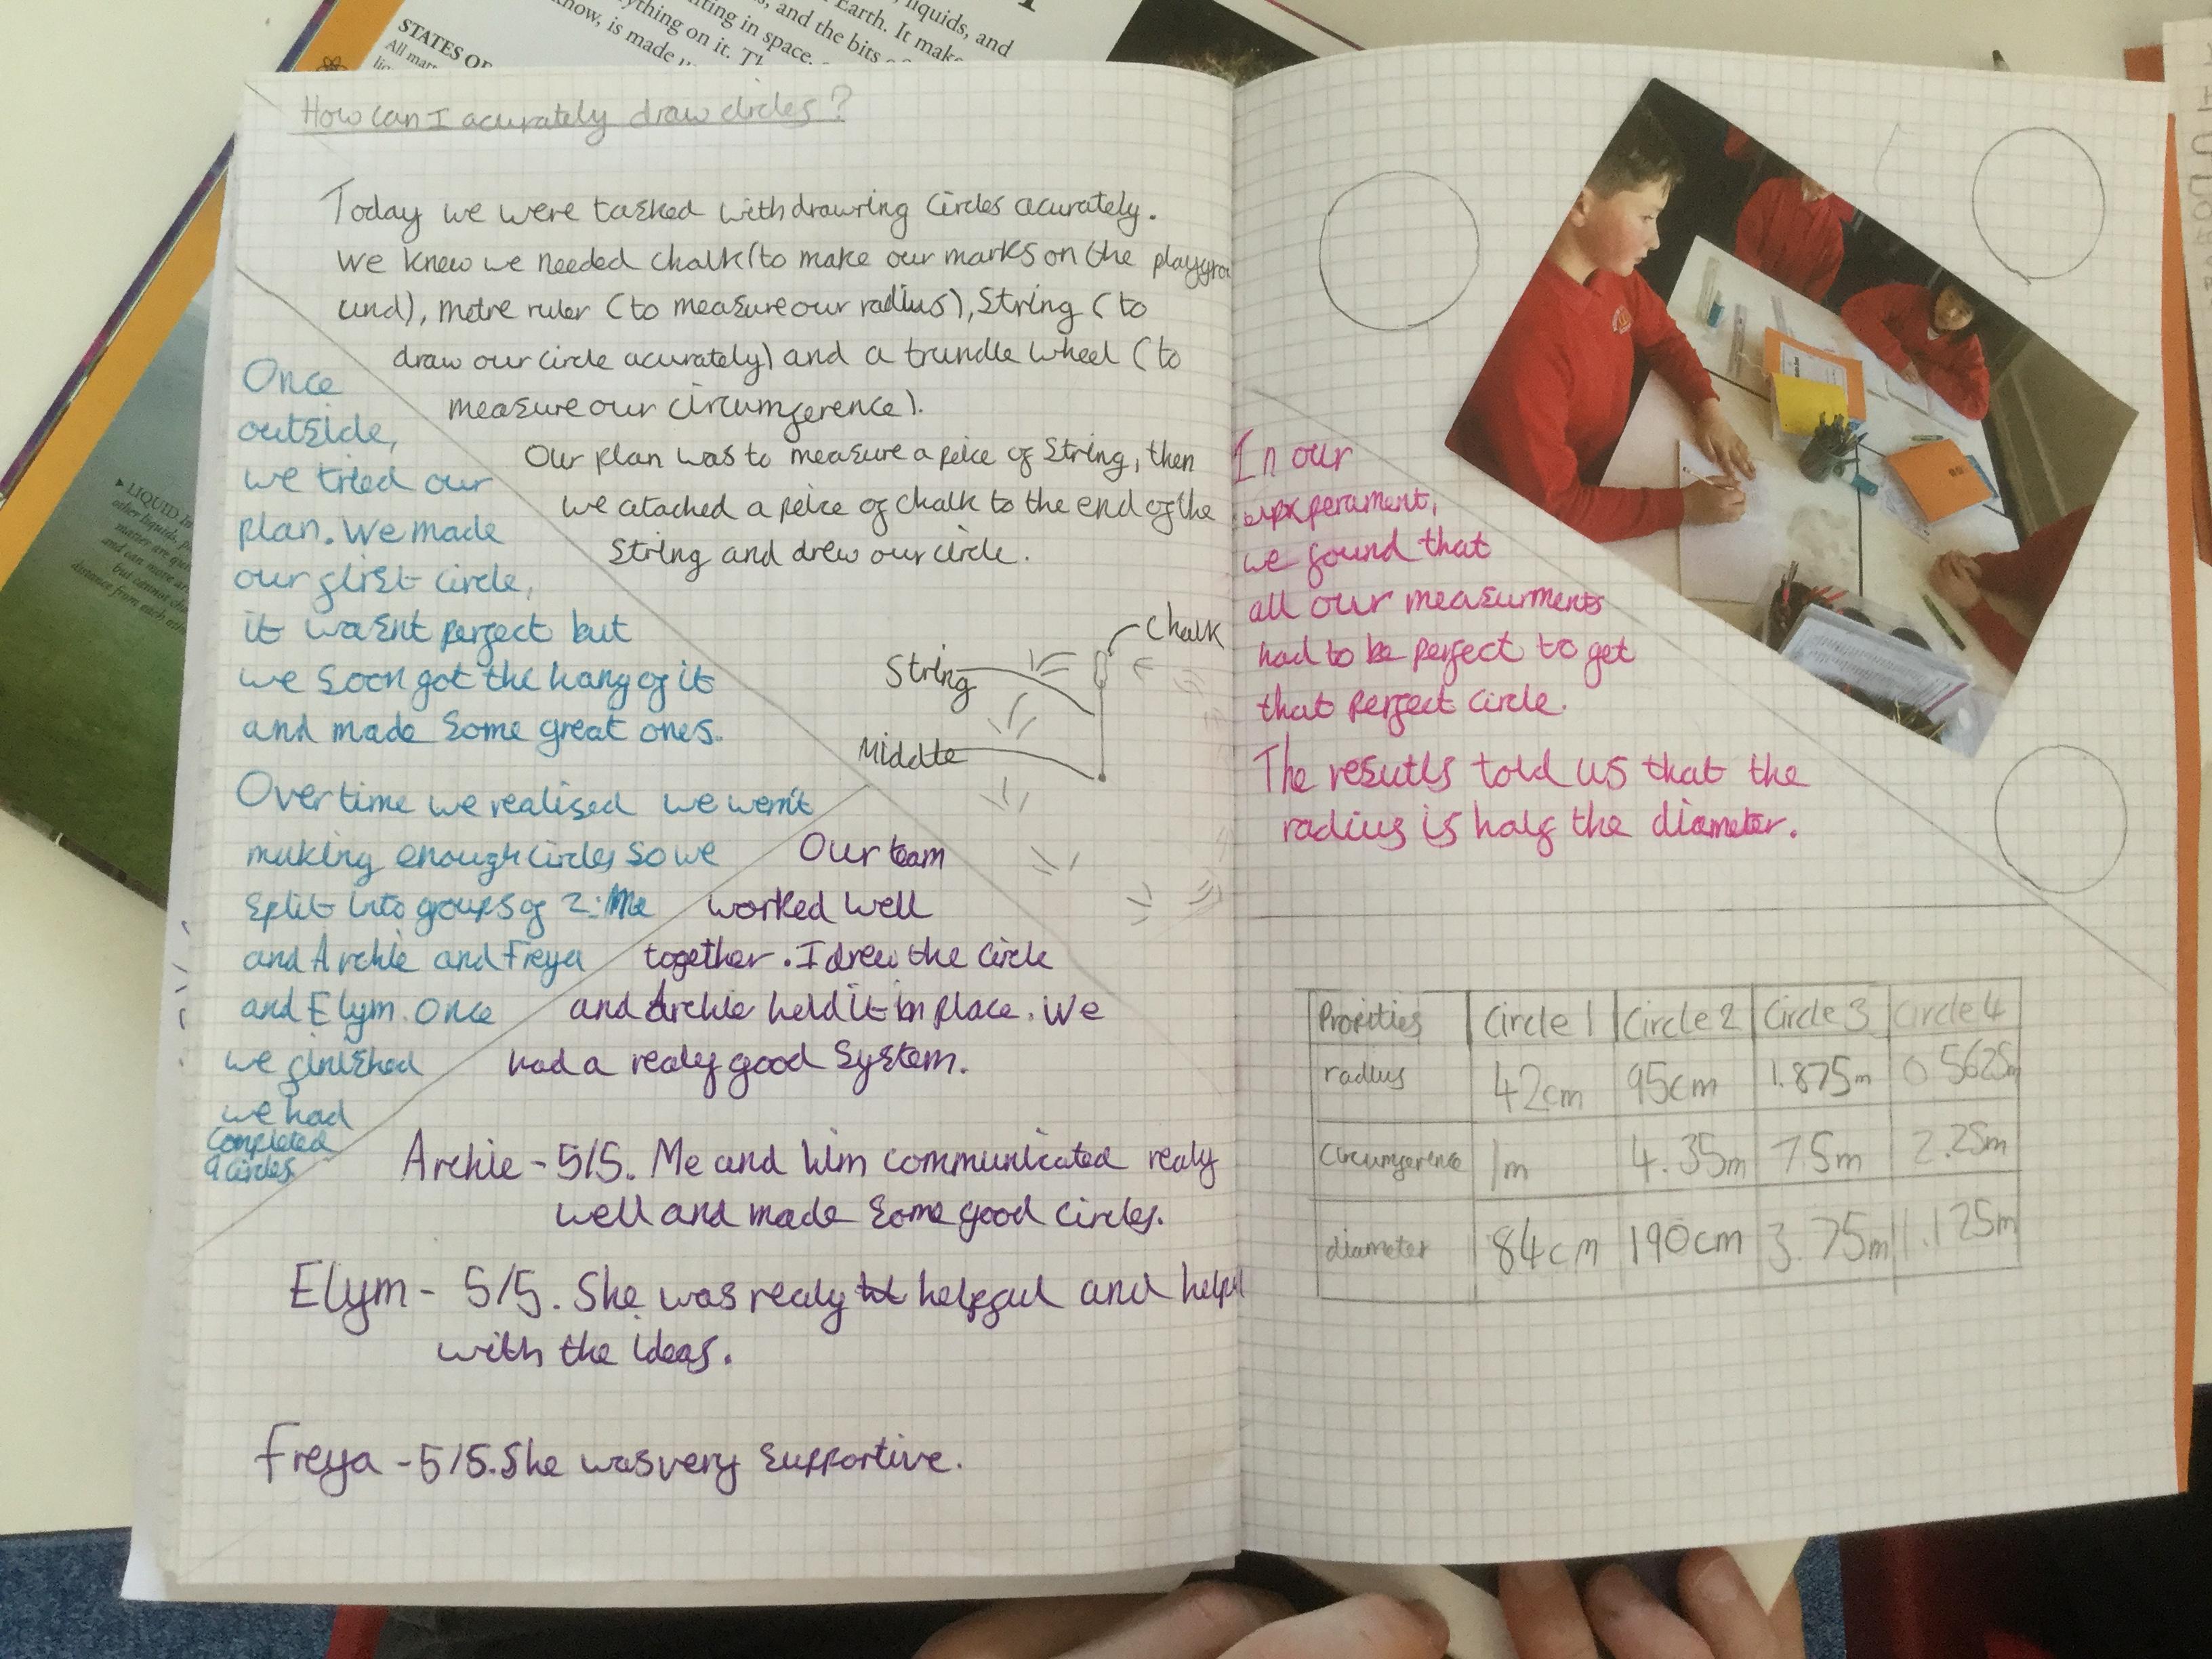 How can I acurately draw circles?
Today we were tasked with drawring circles acurately.
We knew we needed chalk (to make our marks on the playgro
und), metre ruler (to measure our radius), String (to
draw our circle acurately) and a trundle wheel (to
measure our circumference).
Our plan was to measure a peice of String, then
we atached a peice of chalk to the end of the
String and drew our circle.
Chalk
String
Middle
Once
outside,
we tried our
plan. We made
our first circle,
it wasnt perfect but
we soon got the hang of it
and made some great ones.
Over time we realised we wern't
making enough circles so we
split into groups of 2: Me
and Archie and Freya
and Elym. Once
we finished
we had
completed
9 circles.
Our team
worked well
together. I drew the circle
and Archie held it in place. We
had a realy good System.
Archie - 5/5. Me and him communicated realy
well and made some good circles.
Elym - 5/5. She was realy helpful and helpd
with the ideas.
Freya - 5/5. She was very supportive.
In our
experament,
we found that
all our measurments
had to be perfect to get
that perfect circle.
The resutls told us that the
radius is half the diameter.
Circle 1 Circle 2 Circle 3 Circle 4
radius 42cm 95cm 1.875m 0.5625m
circumference 1m 4.35m 7.5m 2.25m
diameter 84cm 190cm 3.75m 1.125m
STATES OF
All mat
liquids, and
Earth. It make
and the bits
ting in space.
ything on it. Th
know, is made u
LIQUID
other liquids, p
matter are qui
and can move ar
but cannot cha
distance from each othe